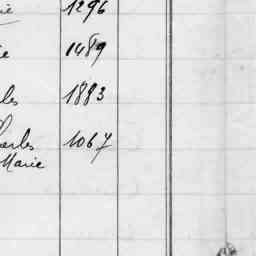 1296
1489
les 1883
harles 1067
Marie